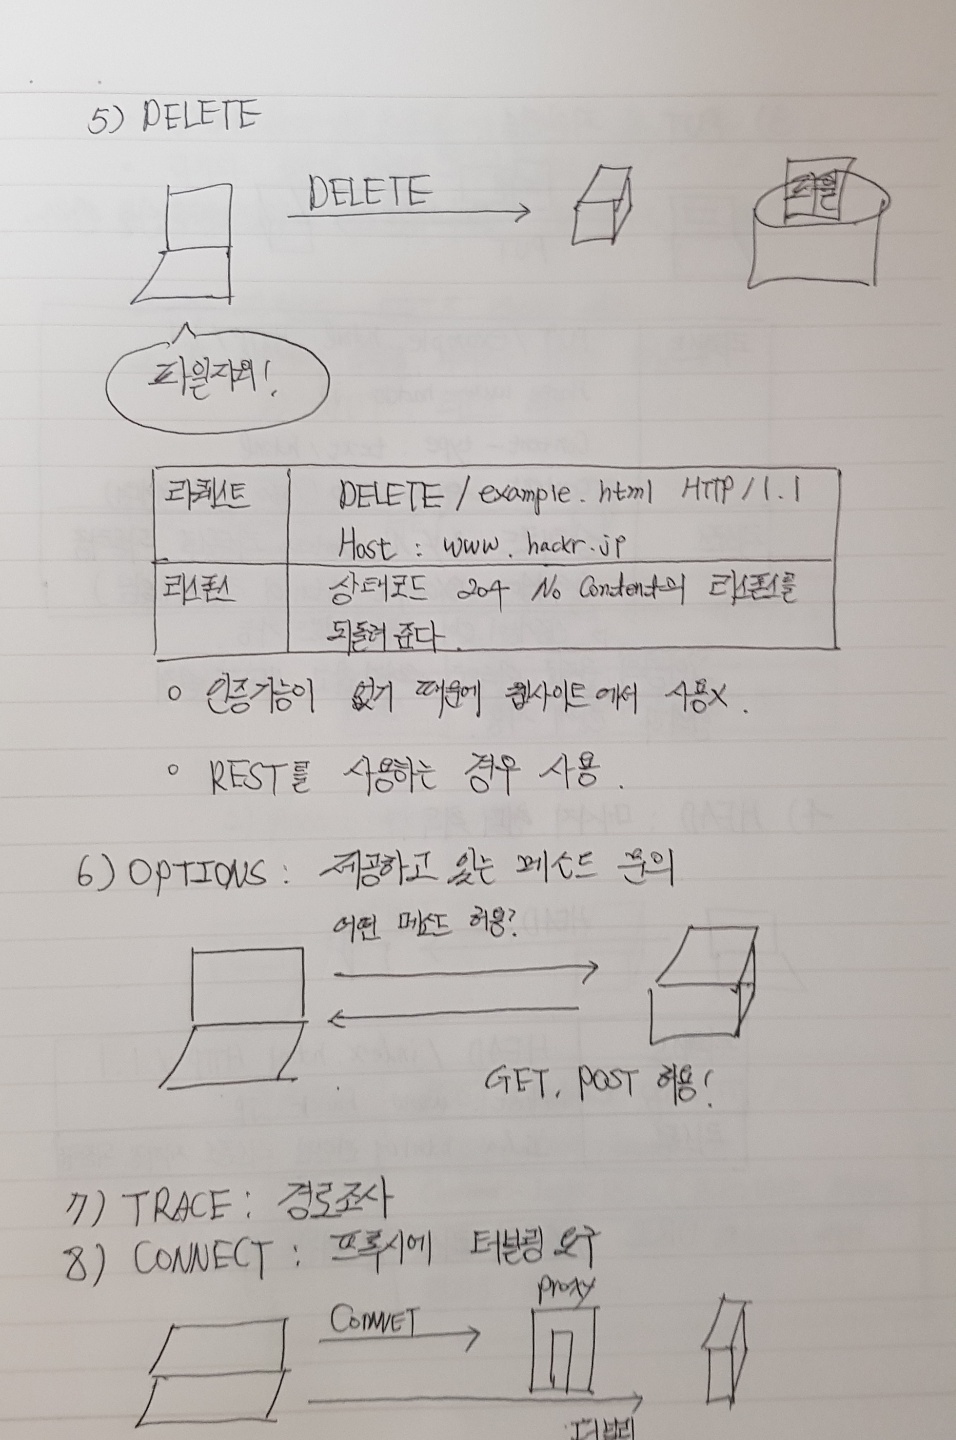 5) DELETE
DELETE
파일
파일지워!
리퀘스트 DELETE / example.html HTTP / 1.1
Host : www.hackr.jp
리스폰스 상태코드 204 No Content의 리스폰스를
되돌려 준다.
인증기능이 없기 때문에 웹사이트에서 사용X.
REST를 사용하는 경우 사용.
6) OPTIONS : 제공하고 있는 메소드 문의
어떤 메소드 허용?
GET, POST 허용!
7) TRACE : 경로조사
8) CONNECT : 프록시에 터널링 요구
Proxy
CONNET